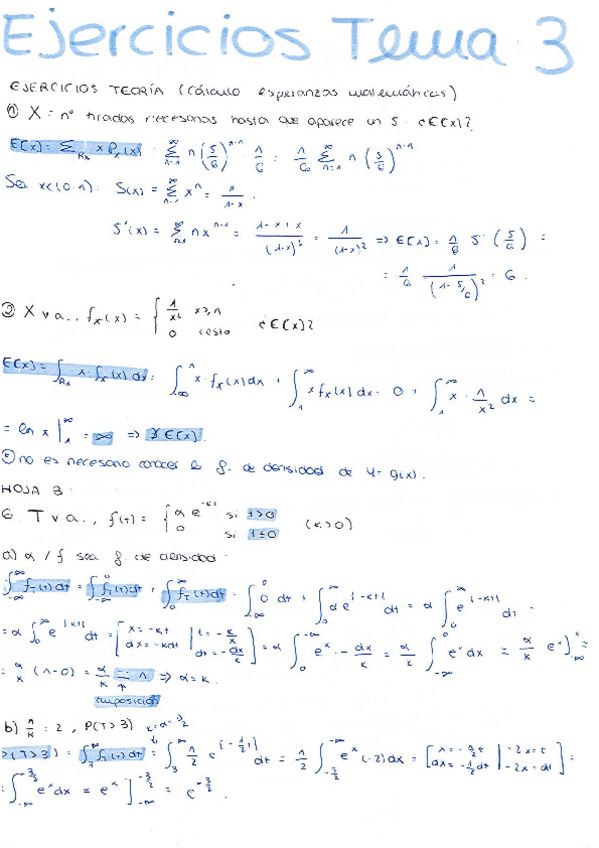 Ejercicios Tema 3
EJERCICIOS TEORÍA (Cálculo esperanzas matemáticas)
① X = nº tiradas necesarias hasta que aparece un 5. ¿E[x]?
E[x] = Σ_{Rx} x P_x(x) = Σ_{n=1}^{∞} n (5/6)^{n-1} · 1/6 = 1/6 Σ_{n=1}^{∞} n (5/6)^{n-1}
Sea x∈(0,1): S(x) = Σ_{n=1}^{∞} x^n = x/(1-x).
S'(x) = Σ_{n=1}^{∞} n x^{n-1} = (1-x+x)/(1-x)^2 = 1/(1-x)^2 => E[x] = 1/6 S'(5/6) =
= 1/6 · 1/(1-5/6)^2 = 6.
② X v.a. f_x(x) = { 1/x^2 x≥1
0 resto ¿E[x]?
E[x] = ∫_{Rx} x·f_x(x) dx = ∫_{-∞}^{1} x·f_x(x) dx + ∫_{1}^{∞} x f_x(x) dx = 0 + ∫_{1}^{∞} x · 1/x^2 dx =
= ln x |_{1}^{∞} = ∞ => ∄ E[x].
no es necesario conocer la f. de densidad de Y = g(x).
HOJA 3:
6. T v.a., f(t) = { α e^{-kt} si t>0
0 si t≤0 (k>0)
a) α / f sea f. de densidad.
∫_{-∞}^{∞} f_T(t) dt = ∫_{-∞}^{0} f_T(t) dt + ∫_{0}^{∞} f_T(t) dt = ∫_{-∞}^{0} 0 dt + ∫_{0}^{∞} α e^{(-kt)} dt = α ∫_{0}^{∞} e^{(-kt)} dt =
= α ∫_{0}^{∞} e^{(-kt)} dt = [x = -kt | t = -x/k
dx = -kdt | dt = -dx/k] = α ∫_{0}^{-∞} e^x · -dx/k = α/k ∫_{-∞}^{0} e^x dx = α/k e^x]_{-∞}^{0} =
= α/k (1-0) = α/k = 1 => α = k.
imposición
b) 1/k = 2, P(T>3) k=α=1/2
P(T>3) = ∫_{3}^{∞} f_T(t) dt = ∫_{3}^{∞} 1/2 e^{(-1/2 t)} dt = 1/2 ∫_{-3/2}^{-∞} e^x (-2) dx = [x = -1/2 t | -2x = t
dx = -1/2 dt | -2dx = dt] =
= ∫_{-∞}^{-3/2} e^x dx = e^x]_{-∞}^{-3/2} = e^{-3/2}.